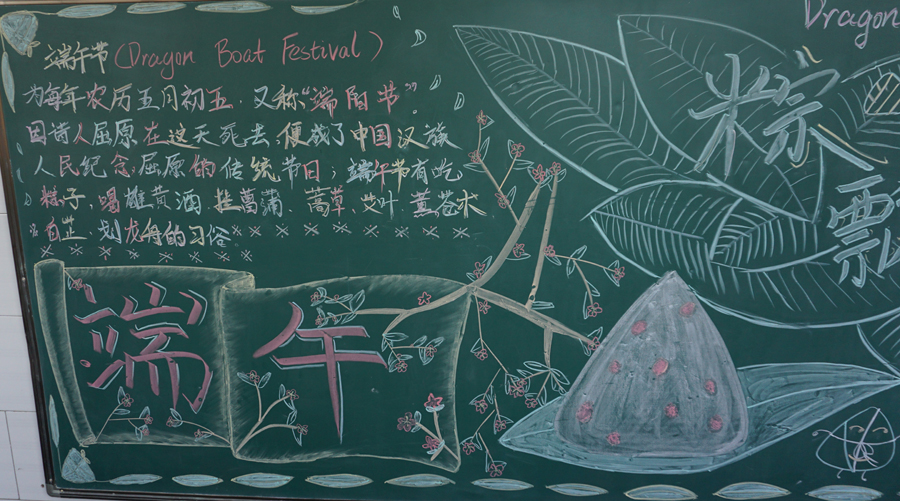 端午节(Dragon Boat Festival)
为每年农历五月初五,又称"端阳节"
因诗人屈原在这天死去,便成了中国汉族
人民纪念屈原的传统节日;端午节有吃
粽子,喝雄黄酒,挂菖蒲、蒿草、艾叶 薰苍术
白芷,划龙舟的习俗
端 午
Dragon
粽
飘